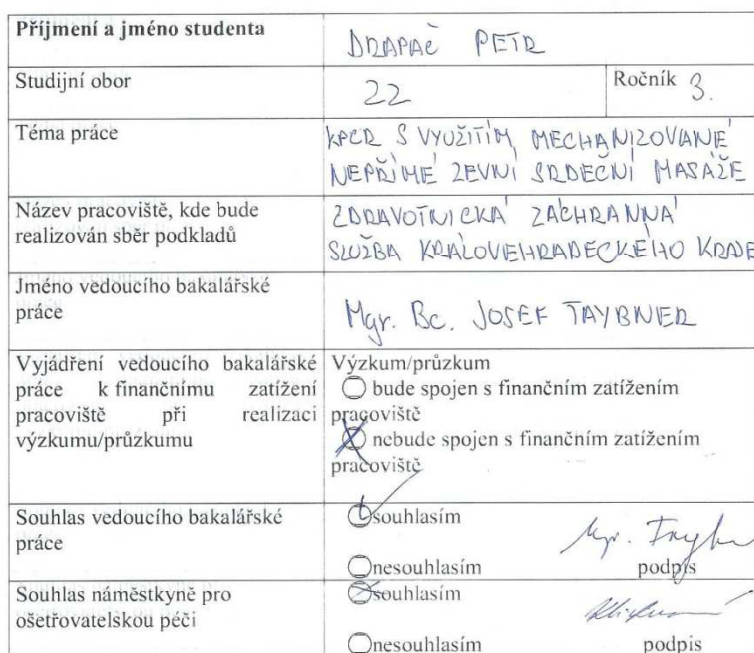 Příjmení a jméno studenta
DRAPAČ PETR
Studijní obor
22
Ročník 3.
Téma práce
KPCR S VYUŽITÍM MECHANIZOVANÉ
NEPŘÍMÉ ZEVNÍ SRDEČNÍ MASÁŽE
Název pracoviště, kde bude
realizován sběr podkladů
ZDRAVOTNICKÁ ZÁCHRANNÁ
SLUŽBA KRÁLOVEHRADECKÉHO KRAJE
Jméno vedoucího bakalářské
práce
Mgr. Bc. JOSEF TAYBNER
Vyjádření vedoucího bakalářské
práce k finančnímu zatížení
pracoviště při realizaci
výzkumu/průzkumu
Výzkum/průzkum
bude spojen s finančním zatížením
pracoviště
nebude spojen s finančním zatížením
pracoviště
Souhlas vedoucího bakalářské
práce
souhlasím
Mgr.
nesouhlasím podpis
Souhlas náměstkyně pro
ošetřovatelskou péči
souhlasím
nesouhlasím podpis